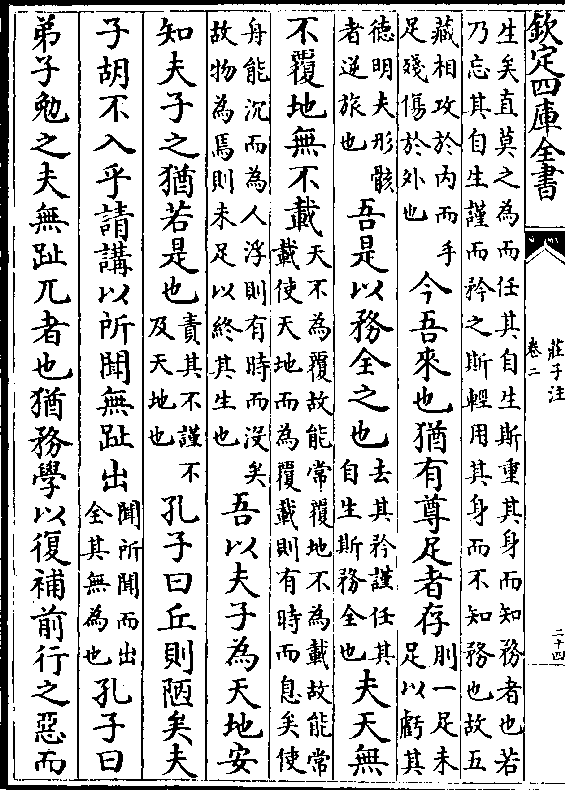 欽定四庫全書
莊子注
卷二
二十四
生矣直莫之為而任其自生斯重其身而知務者也若
乃忘其自生謹而矜之斯輕用其身而不知務也故五
藏相攻於內而手
足殘傷於外也
今吾來也猶有尊足者存
則一足未
足以虧其
德明夫形骸
者逆旅也
吾是以務全之也
去其矜謹任其
自生斯務全也
夫天無
不覆地無不載
天不為覆故能常覆地不為載故能常
載使天地而為覆載則有時而息矣使
舟能沉而為人浮則有時而沒矣
故物為焉則未足以終其生也
吾以夫子為天地安
知夫子之猶若是也
責其不謹不
及天地也
孔子曰丘則陋矣夫
子胡不入乎請講以所聞無趾出
聞所聞而出
全其無為也
孔子曰
弟子勉之夫無趾兀者也猶務學以復補前行之惡而